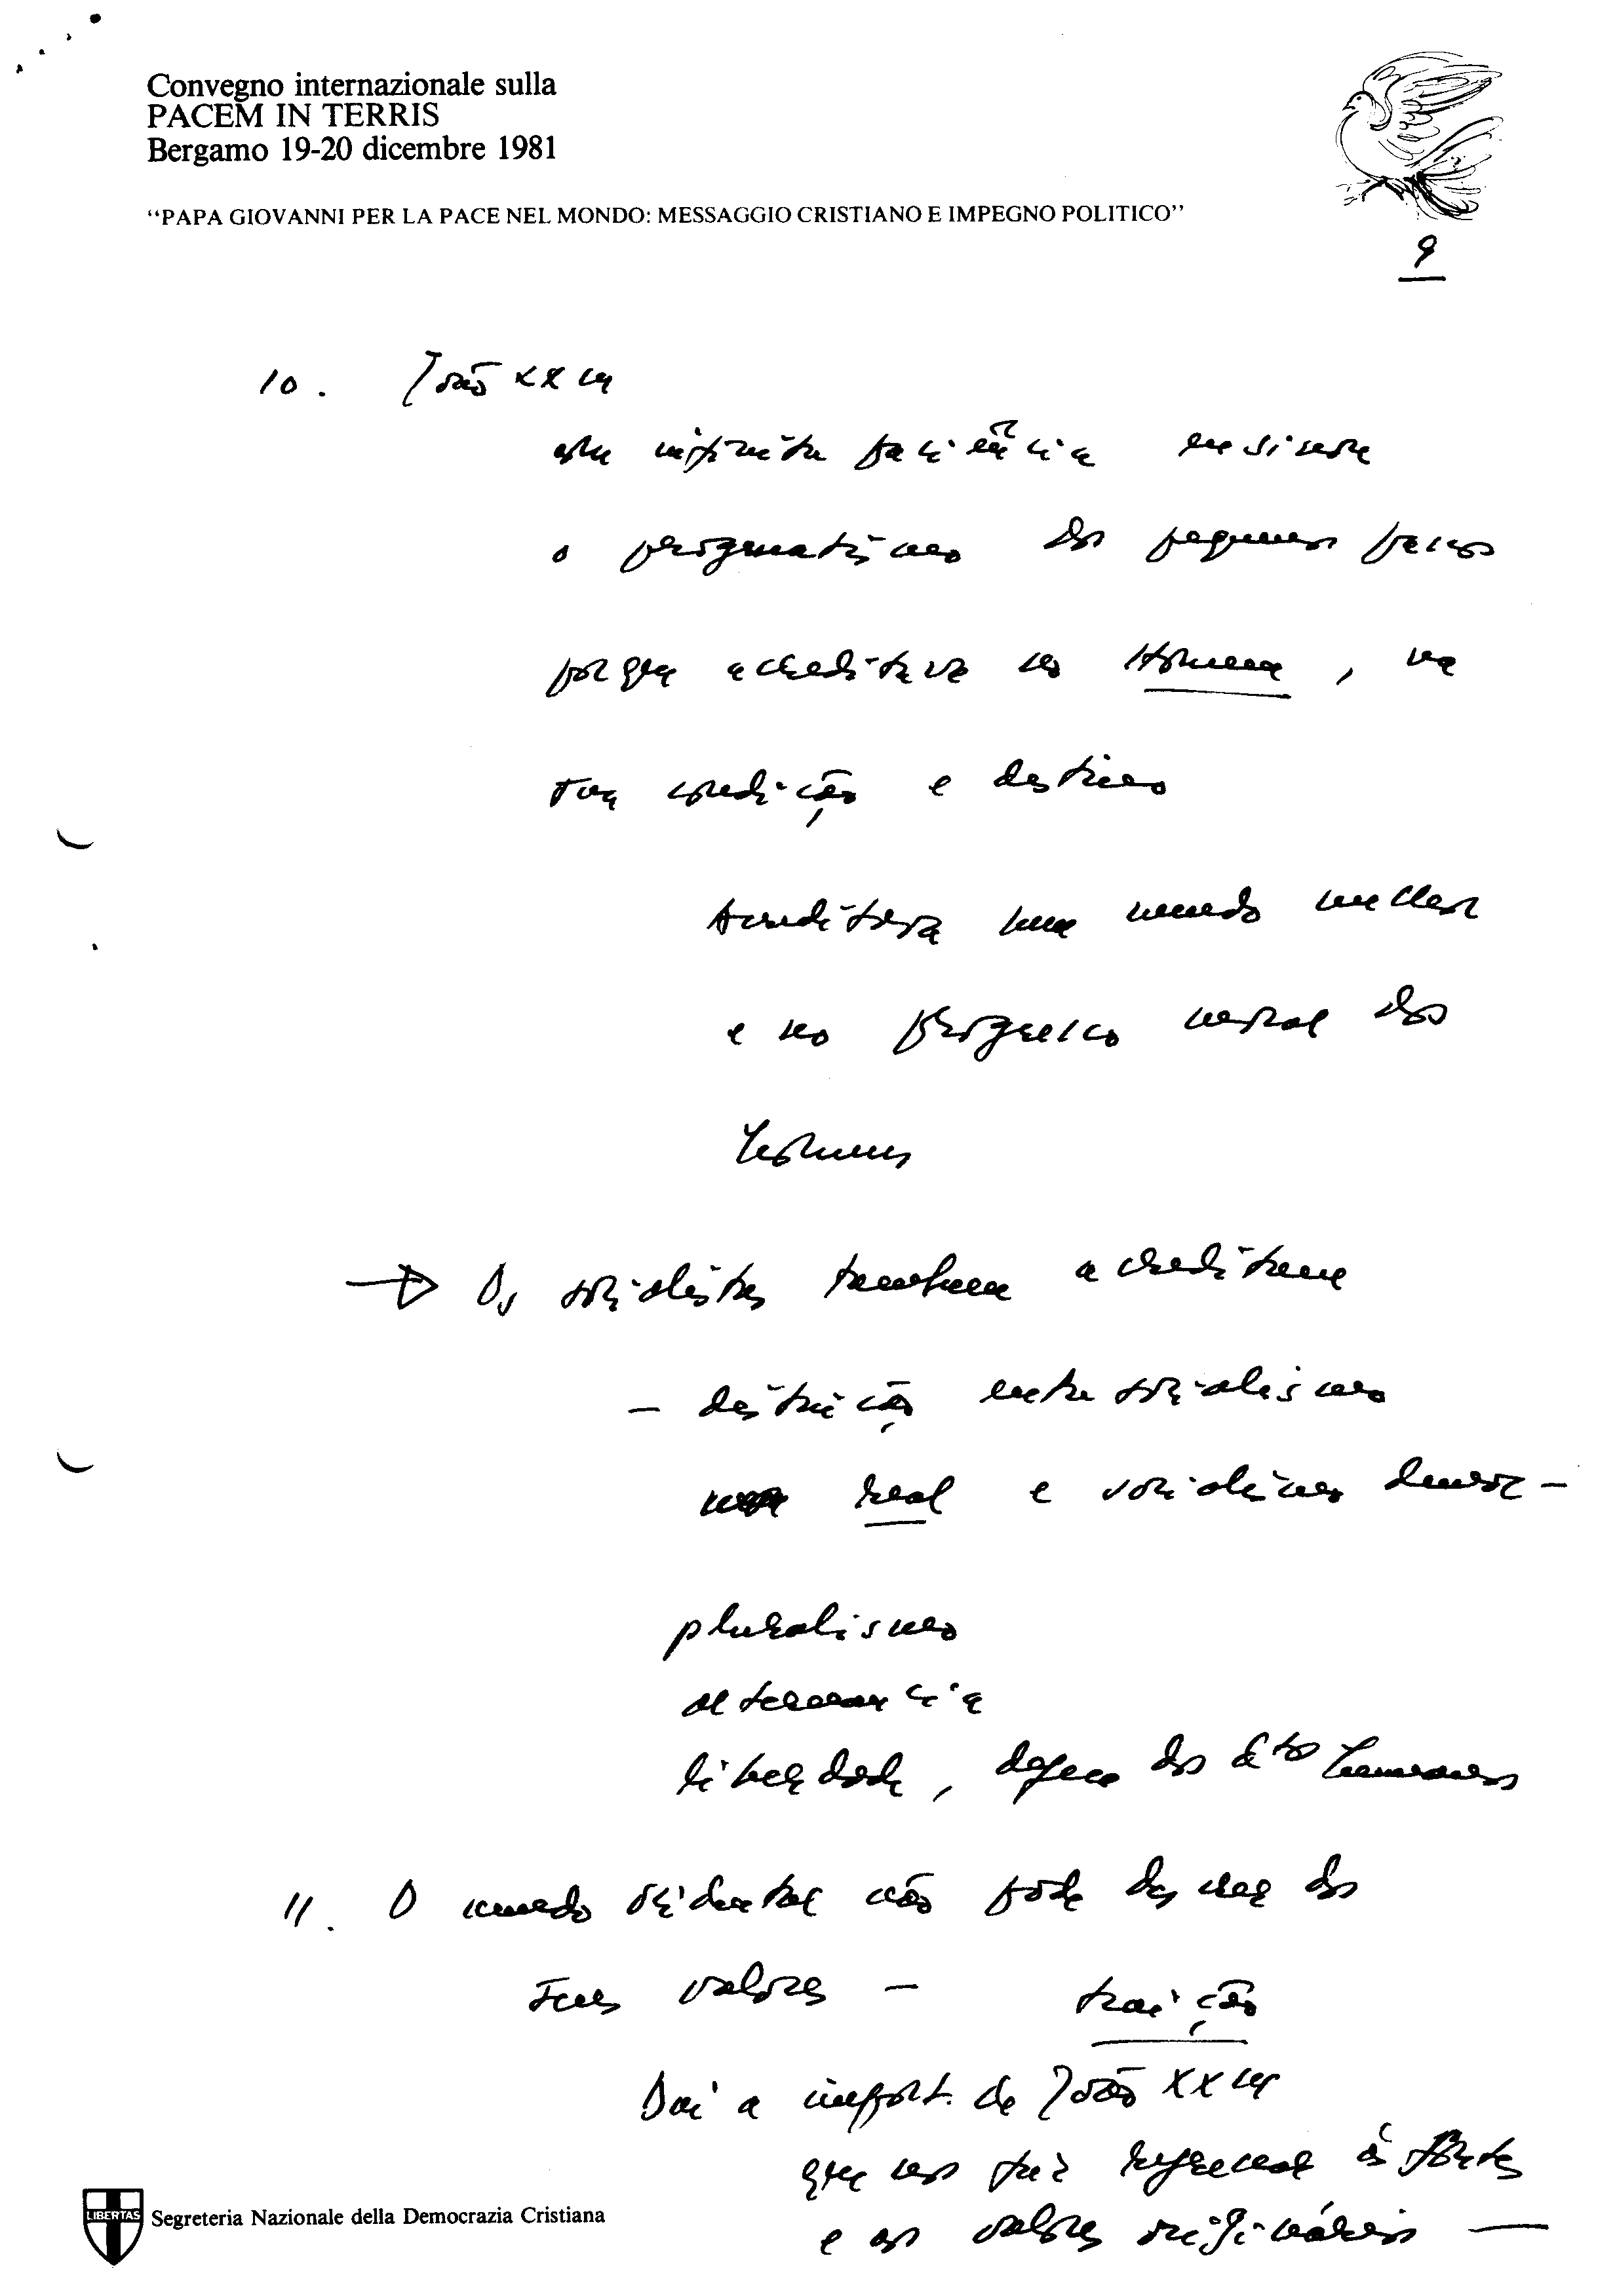 Convegno internazionale sulla
PACEM IN TERRIS
Bergamo 19-20 dicembre 1981
"PAPA GIOVANNI PER LA PACE NEL MONDO: MESSAGGIO CRISTIANO E IMPEGNO POLITICO"
9
10. João XXIII
infinita paciência ensinou
o pragmatismo dos pequenos passos
porque acreditava no Homem, na
sua condição e destino
Acreditava num mundo melhor
e no progresso moral dos
homens
→ Os socialistas também acreditam
- distinção entre socialismo
real e socialismo democ-
pluralismo
alternancia
liberdade, defesa dos dtos humanos
11. O mundo ocidental não pode descrer dos
seus valores - traição
Daí a import. de João XXIII
que nos faz regressar às fontes
e aos valores originários —
LIBERTAS
Segreteria Nazionale della Democrazia Cristiana